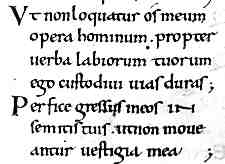 Vt non loquatur os meum
opera hominum. propter
uerba labiorum tuorum
ego custodiui uias duras;
Perfice gressus meos in
semitis tuis. ut non moue
antur uestigia mea;